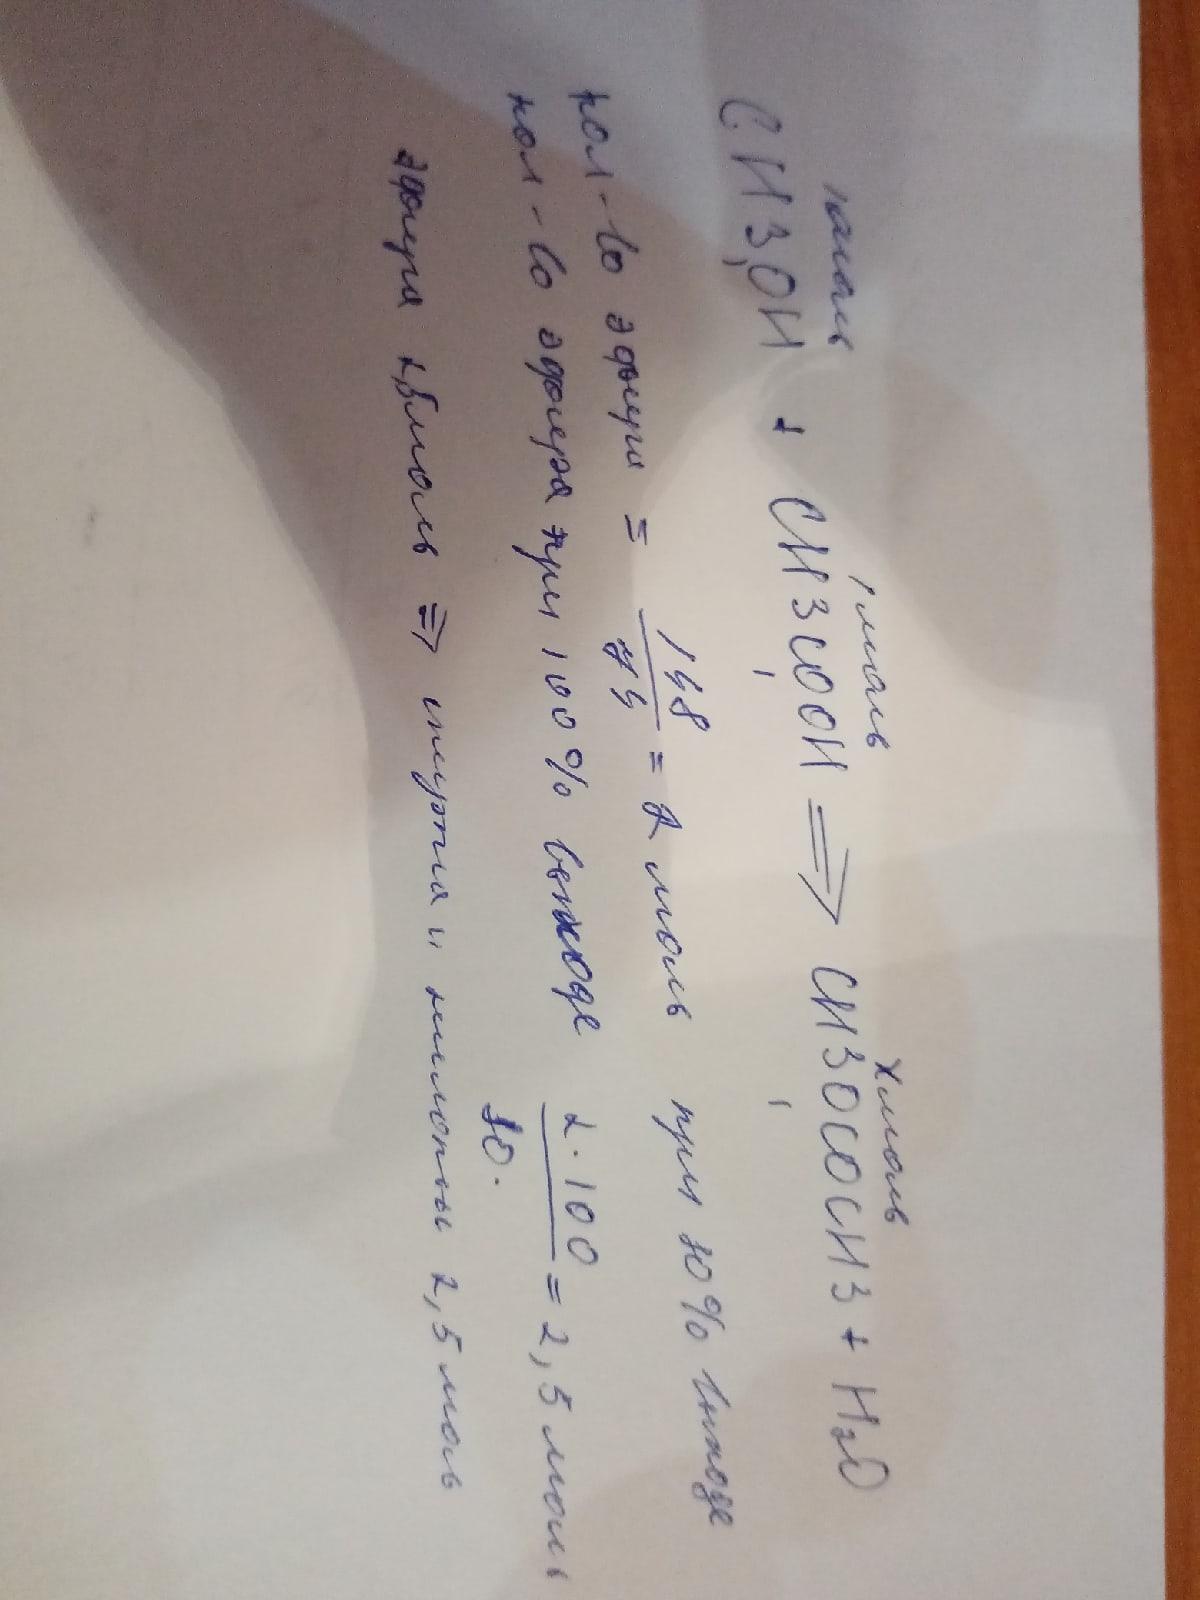 1 моль 1 моль Xмоль
CH3OH + CH3COOH ⇒ CH3OCOCH3 + H2O
кол-во эфира = 148/74 = 2 моль при 80% выходе
кол-во эфира при 100% выходе 2·100/80. = 2,5 моль
эфира 2,5моль ⇒ спирта и кислоты 2,5 моль